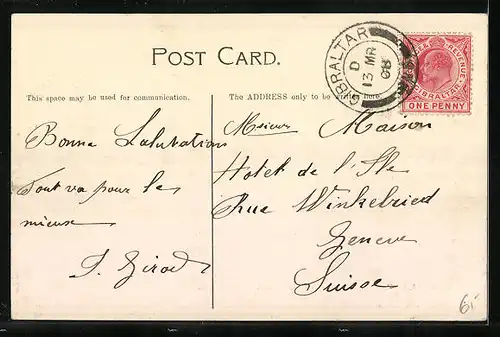 POST CARD.
This space may be used for communication.
The ADDRESS only to be
here.
GIBRALTAR
D
13 MR
08
POSTAGE & REVENUE
GIBRALTAR
ONE PENNY
Bonne Salutations
Tout va pour le
mieux
J. Girod
Maison
Hotel de l'Ile
Rue Winkelried
Geneve
Suisse